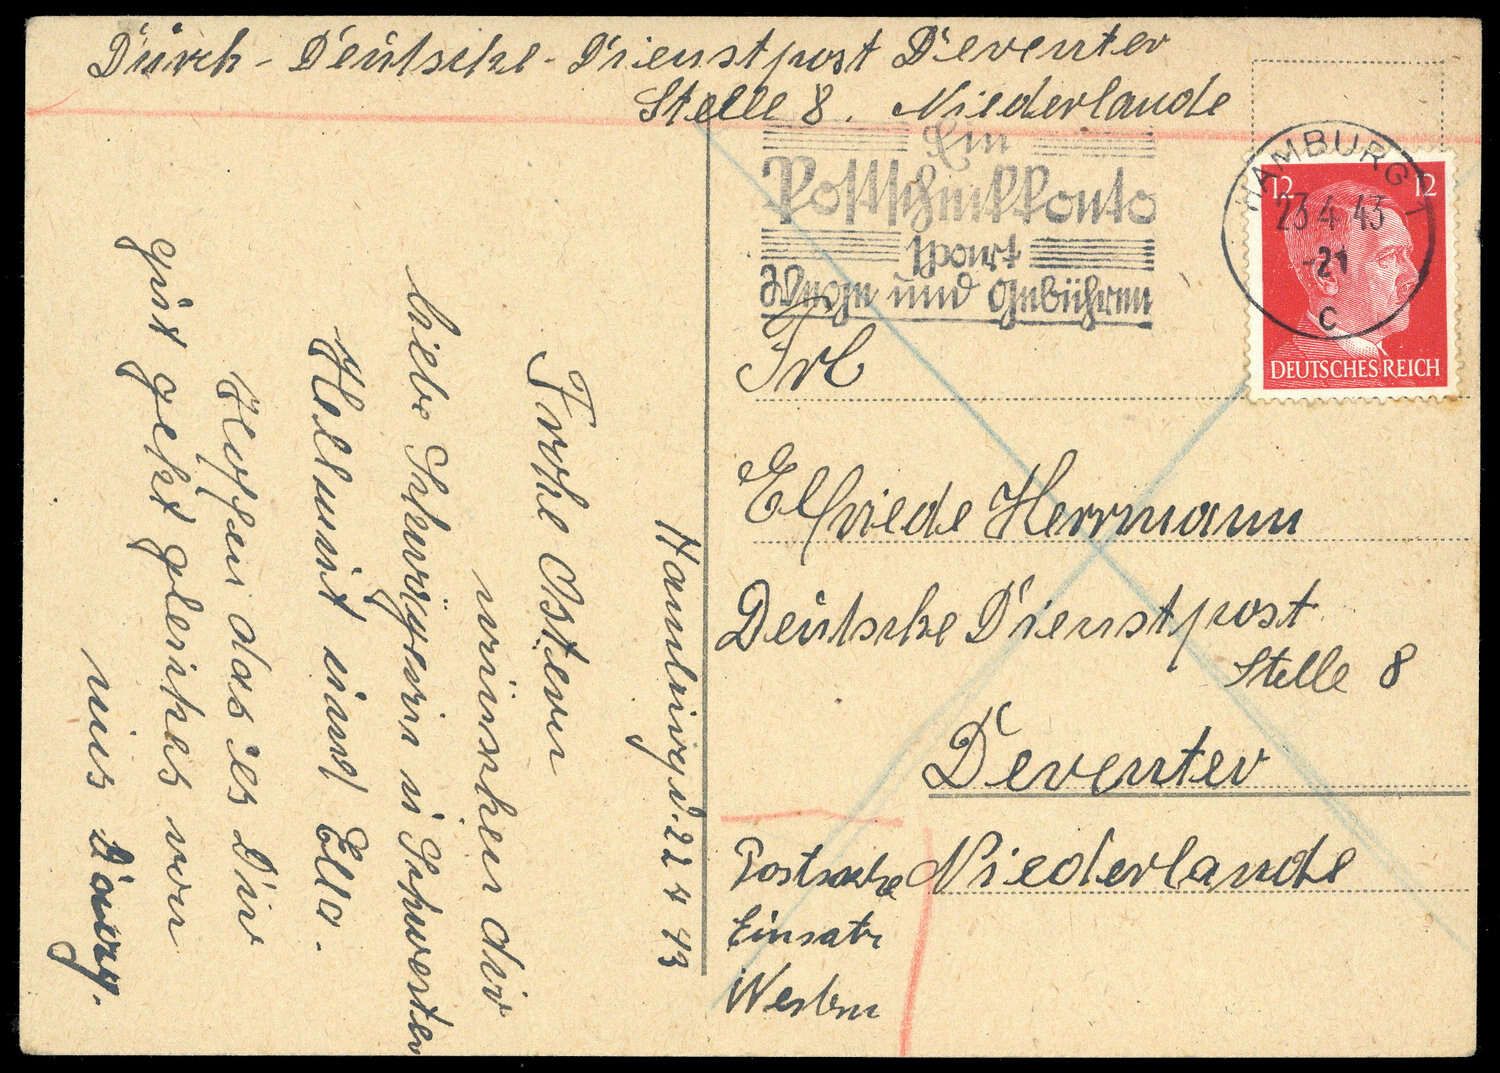 Durch - Deutsche - Dienstpost Deventer
Stelle 8. Niederlande
Ein
Postscheckkonto
spart
Wege und Gebühren
HAMBURG 1
23.4.43
-21
c
12 12
DEUTSCHES REICH
Frl
Elfriede Herrmann
Deutsche Dienstpost
Stelle 8
Deventer
Niederlande
Postsache
Einsatz
Westen
Hamburg d. 22 4 43
Frohe Ostern
wünschen dir
liebe Schwägerin u Schwester
Hellmut und Ella.
Hoffen das es Dir
gut geht gleiches von
uns